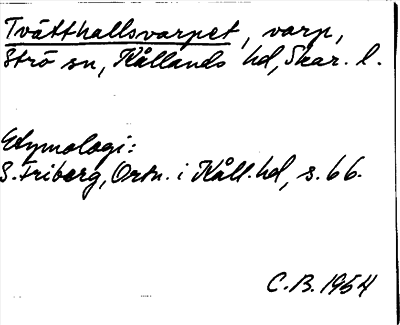 Tvätthallsvarpet, varp,
Strö sn, Kållands hd, Skar. l.
Etymologi:
S. Friberg, Ortn. i Kåll. hd, s. 66.
C.B. 1954